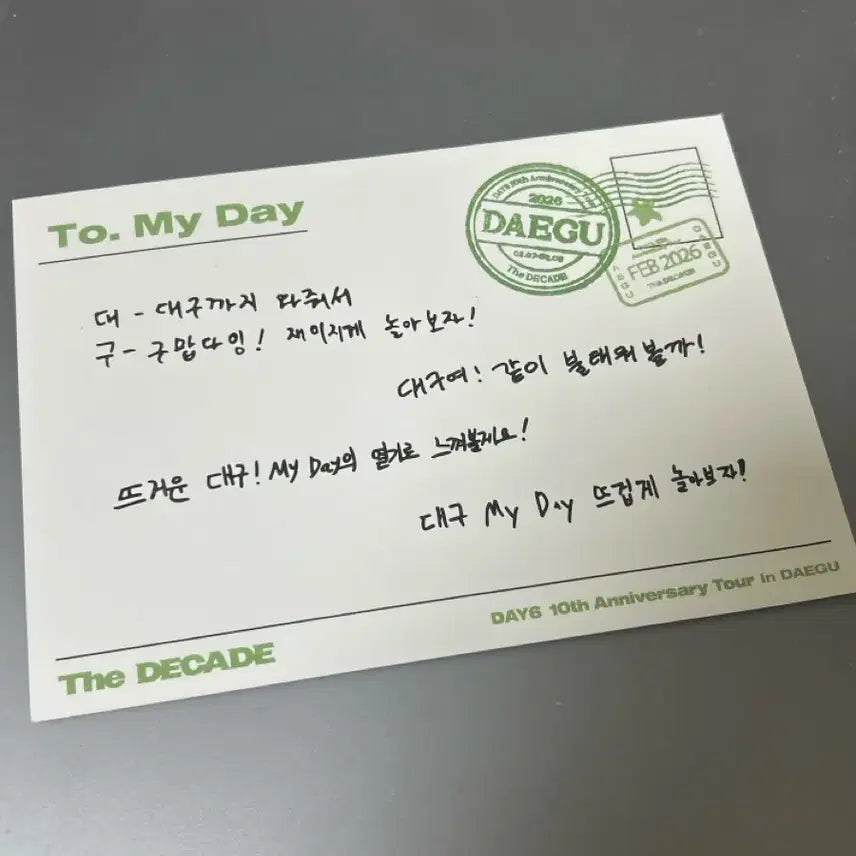 To. My Day
DAY6 10th Anniversary Tour
2026
DAEGU
The DECADE
FEB 2026
The DECADE
대 - 대구까지 와줘서
구 - 구맙다잉! 재미지게 놀아보자!
대구여! 같이 불태워볼까!
뜨거운 대구! My Day의 열기로 느껴볼게요!
대구 My Day 뜨겁게 놀아보자!
DAY6 10th Anniversary Tour in DAEGU
The DECADE